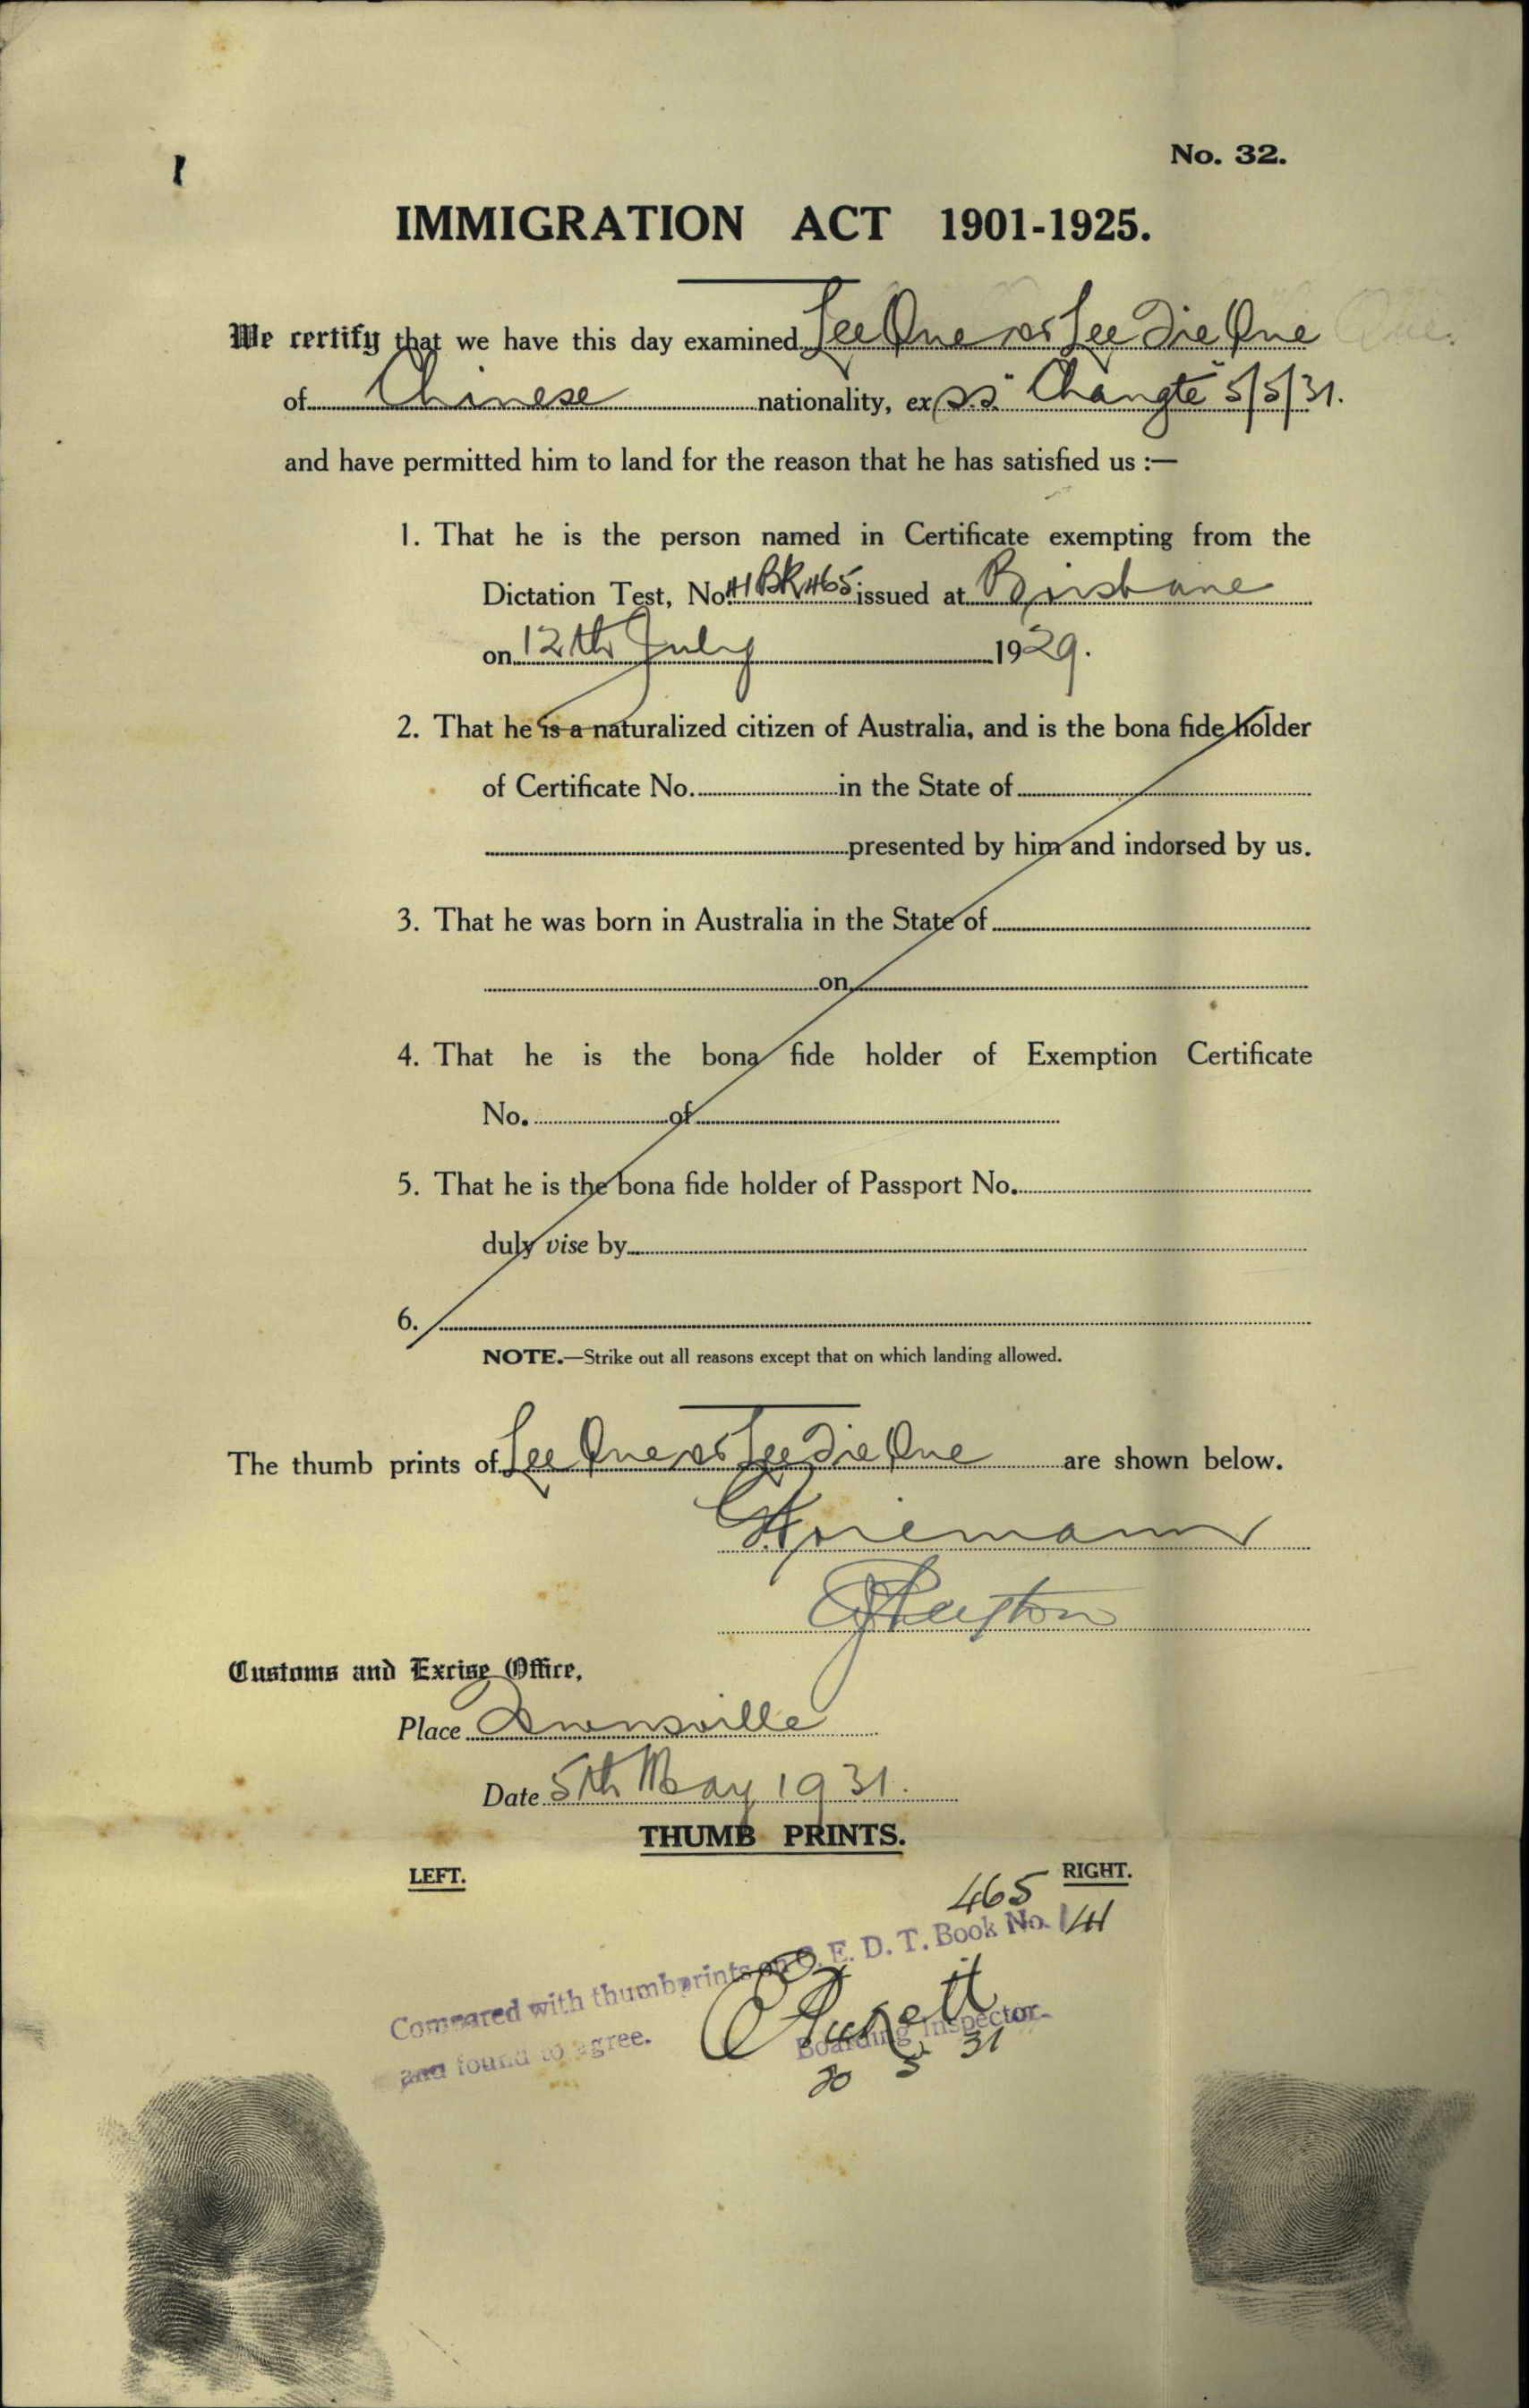 1
No. 32.
IMMIGRATION ACT 1901-1925.
We certify that we have this day examined Lee Que or Lee Die Que Que.
of Chinese nationality, ex S.S. "Changte" 5/5/31.
and have permitted him to land for the reason that he has satisfied us :—
1. That he is the person named in Certificate exempting from the
Dictation Test, No. 41 BR 465 issued at Brisbane
on 12th July 1929.
2. That he is a naturalized citizen of Australia, and is the bona fide holder
of Certificate No. in the State of
presented by him and indorsed by us.
3. That he was born in Australia in the State of
on
4. That he is the bona fide holder of Exemption Certificate
No. of
5. That he is the bona fide holder of Passport No.
duly vise by
6.
NOTE.—Strike out all reasons except that on which landing allowed.
The thumb prints of Lee Que or Lee Die Que are shown below.
Customs and Excise Office,
Place Townsville
Date 5th May 1931.
THUMB PRINTS.
LEFT. RIGHT.
465
Compared with thumbprints on C. E. D. T. Book No. 141
and found to agree.
Boarding Inspector
20 5 31